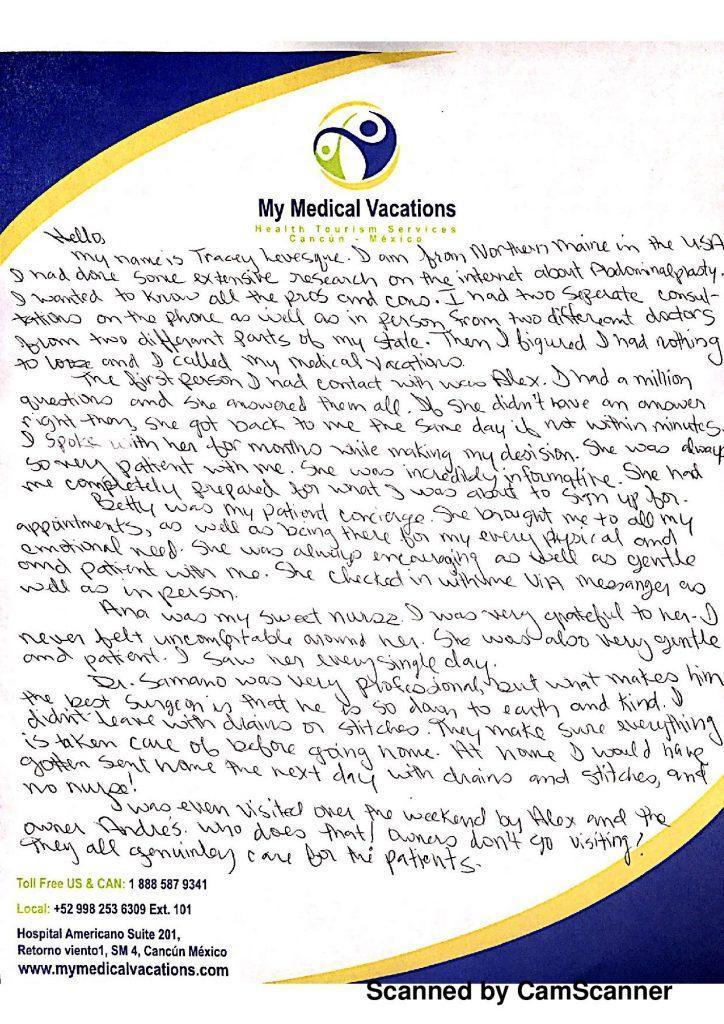 My Medical Vacations
Health Tourism Services
Cancún - México
Hello,
My name is Tracey Levesque. I am from Northern Maine in the USA
I had done some extensive research on the internet about Abdominalplasty.
I wanted to know all the pros and cons. I had two seperate consul-
tations on the phone as well as in person from two different doctors
from two different parts of my state. Then I figured I had nothing
to lose and I called My Medical Vacations.
The first person I had contact with was Alex. I had a million
questions and she answered them all. If she didn't have an answer
right then, she got back to me the same day if not within minutes.
I spoke with her for months while making my desision. She was always
so very patient with me. She was incredibly informative. She had
me completely prepared for what I was about to sign up for.
Betty was my patient concierge. She brought me to all my
appointments, as well as being there for my every physical and
emotional need. She was always encouraging as well as gentle
and patient with me. She checked in with me VIA messanger as
well as in person.
Ana was my sweet nurse. I was very grateful to her. I
never felt uncomfortable around her. She was also very gentle
and patient. I saw her every single day.
Dr. Samano was very professional, but what makes him
the best surgeon is that he is so down to earth and kind. I
didn't leave with drains or stitches. They make sure everything
is taken care of before going home. At home I would have
gotten sent home the next day with drains and stitches, and
no nurse!
I was even visited over the weekend by Alex and the
owner Andrés. Who does that! Owners don't go visiting!
They all genuinley care for the patients.
Toll Free US & CAN: 1 888 587 9341
Local: +52 998 253 6309 Ext. 101
Hospital Americano Suite 201,
Retorno viento1, SM 4, Cancún México
www.mymedicalvacations.com
Scanned by CamScanner